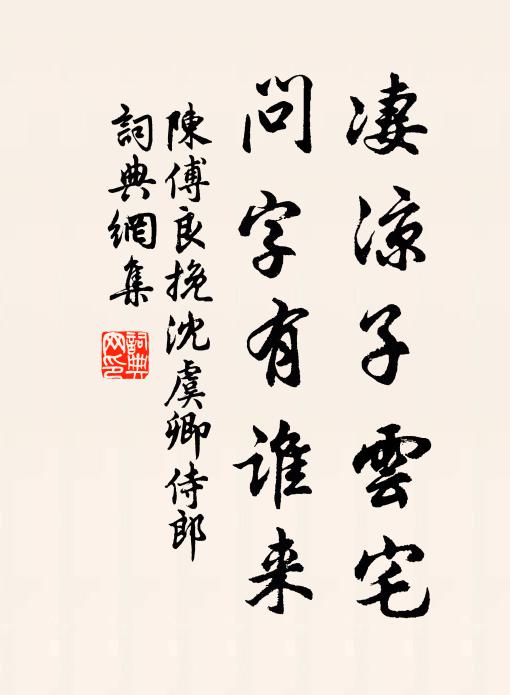 凄凉子雲宅
問字有誰来
陳傅良挽沈虞卿侍郎
詞典網集
詞典網印